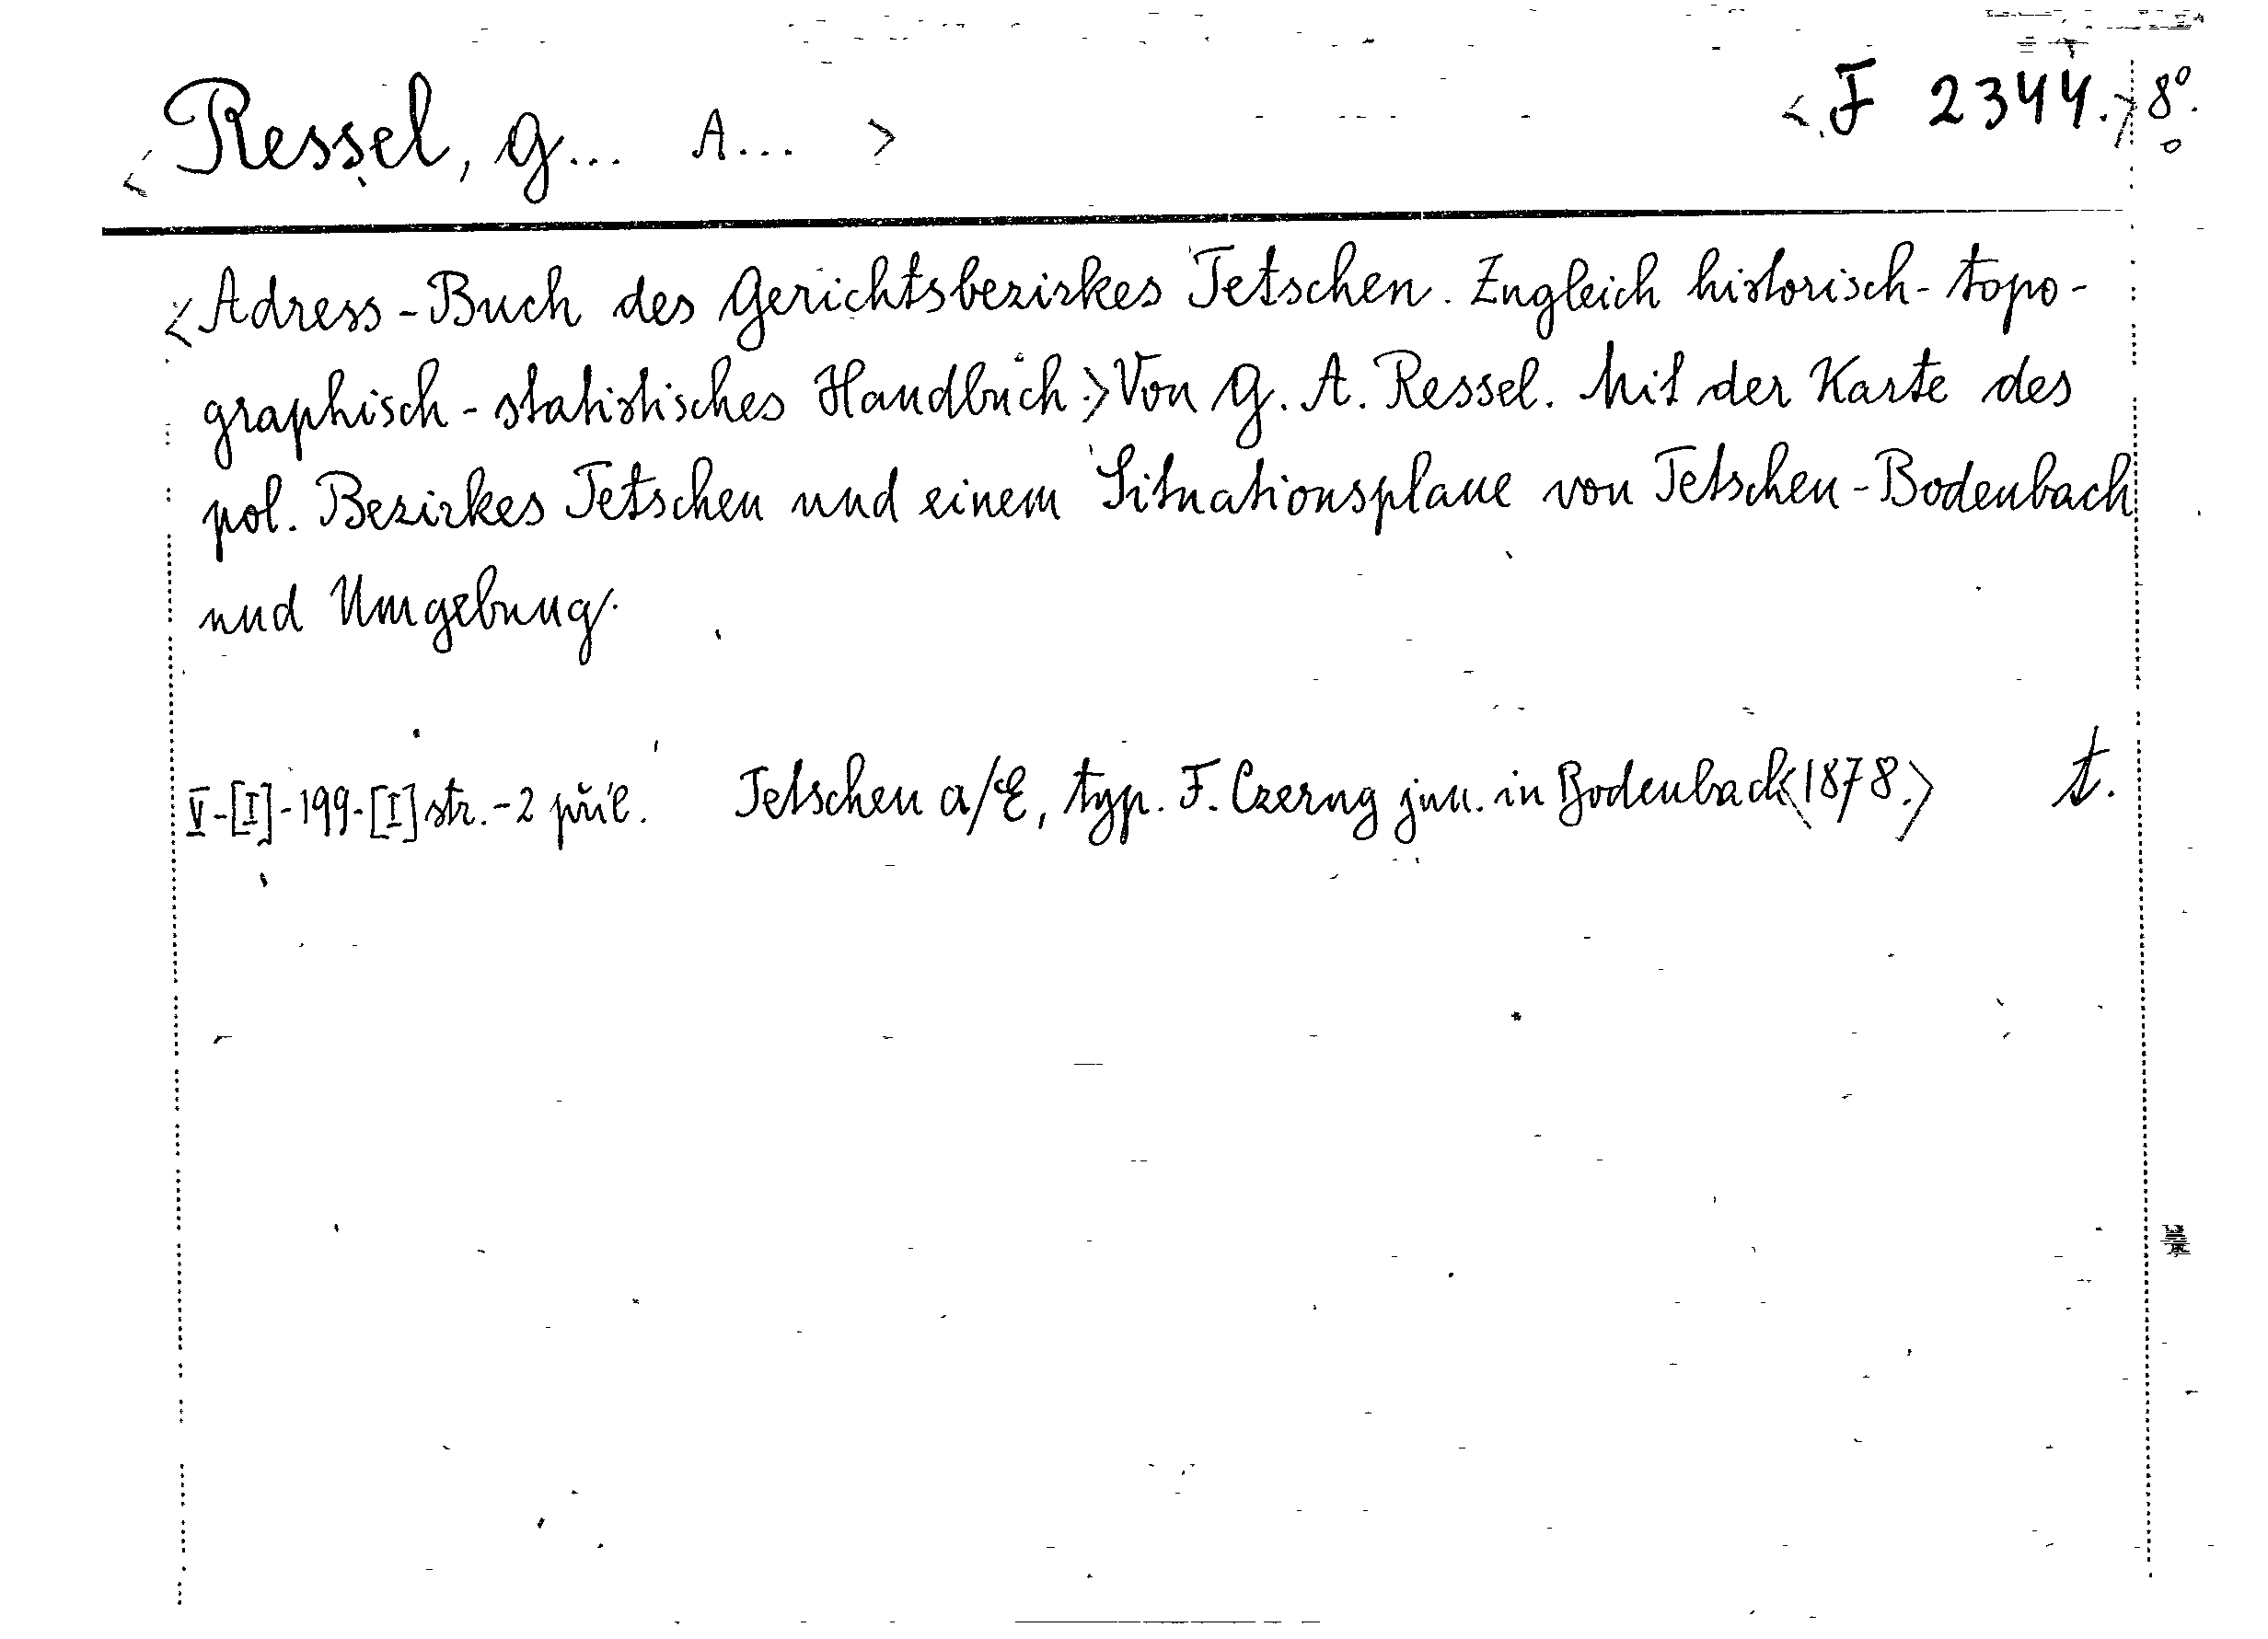 <Ressel, G... A...> <F 2344.> 8°.
<Adress-Buch des Gerichtsbezirkes Tetschen. Zugleich historisch-topo-
graphisch-statistisches Handbuch.> Von G. A. Ressel. Mit der Karte des
pol. Bezirkes Tetschen und einem Situationsplane von Tetschen-Bodenbach
und Umgebung.
V-[I]-199-[I] str.-2 příl. Tetschen a/E, typ. F. Czerny jun. in Bodenbach <1878.> t.